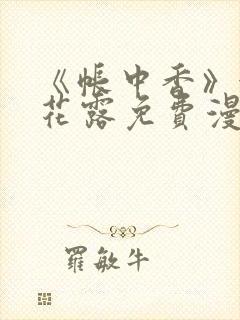 《帐中香》
花露免费漫
罗敏牛